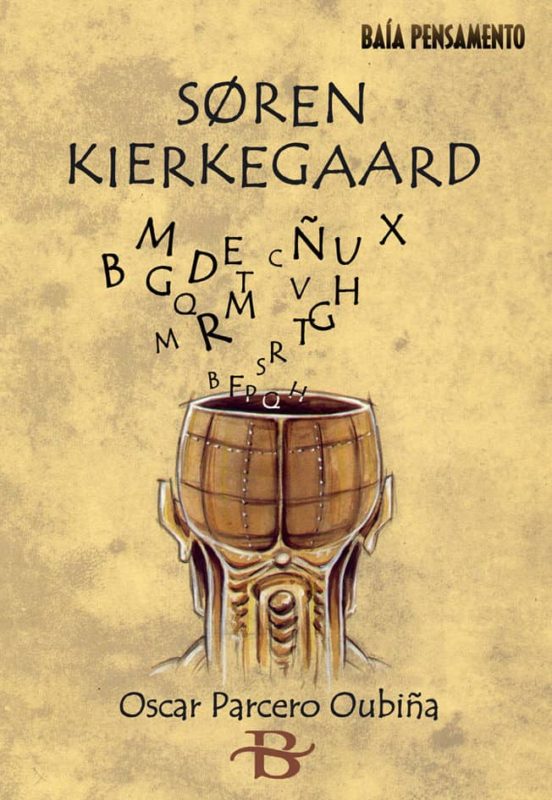 BAÍA PENSAMENTO
SØREN
KIERKEGAARD
B M G D E T C Ñ U X
Q M V H
M R T G
S R
B F P Q H
Oscar Parcero Oubiña
B